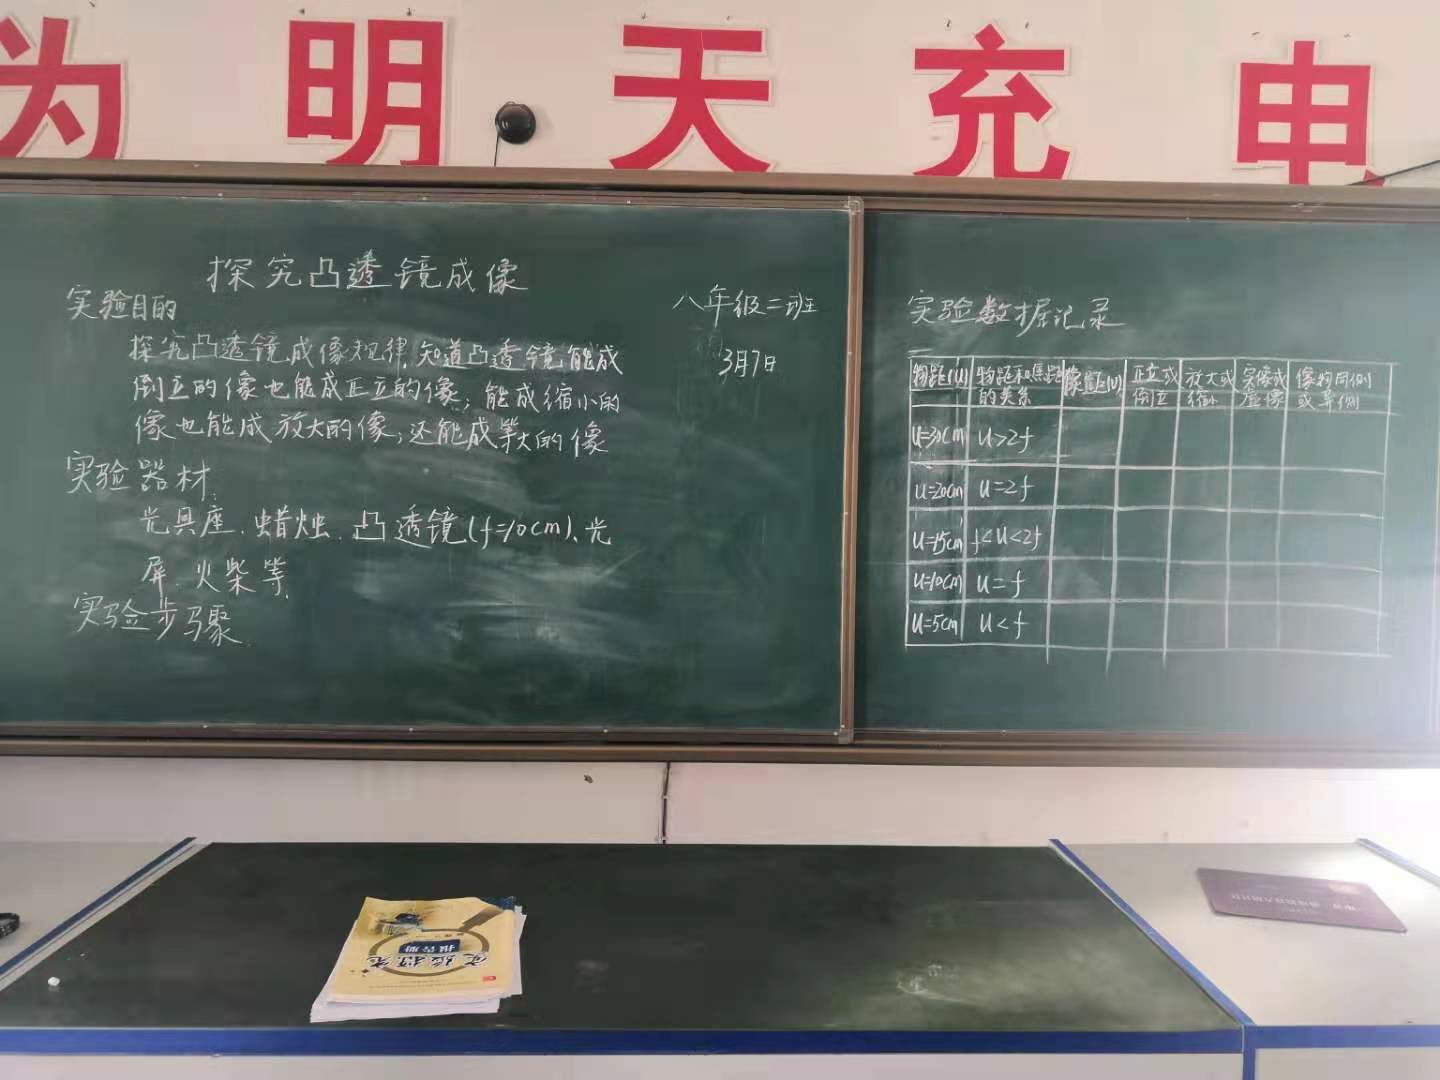 为明天充电
探究凸透镜成像
实验目的
八年级二班
3月7日
探究凸透镜成像规律,知道凸透镜能成
倒立的像也能成正立的像;能成缩小的
像也能成放大的像;还能成等大的像
实验器材:
光具座、蜡烛、凸透镜(f=10cm)、光
屏、火柴等.
实验步骤
实验数据记录
物距(u) 物距和焦距的关系 像距(v) 正立或倒立 放大或缩小 实像或虚像 像物同侧或异侧
u=30cm u>2f
u=20cm u=2f
u=15cm f<u<2f
u=10cm u=f
u=5cm u<f
实验探究
报告册